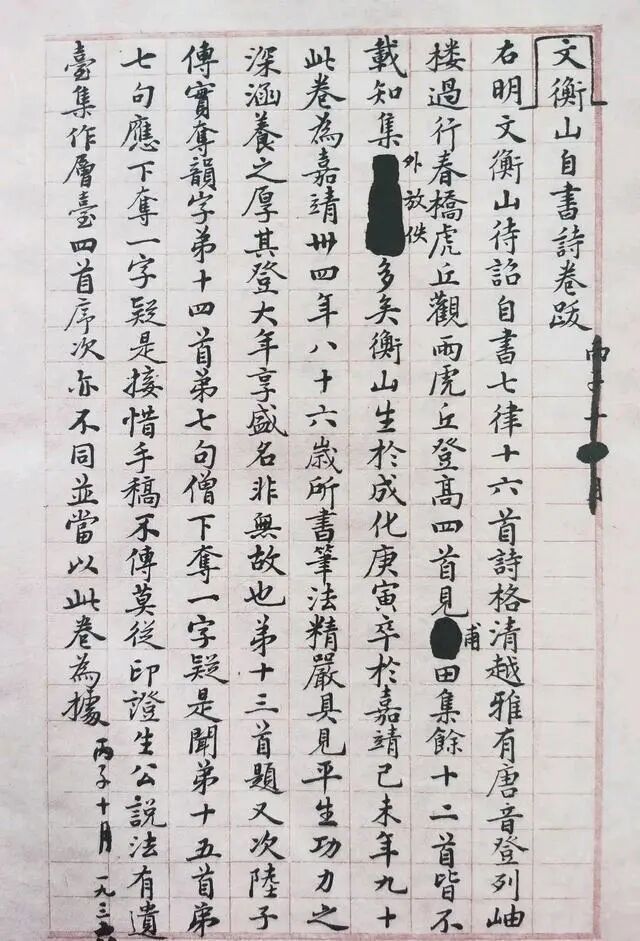 文衡山自書詩卷跋
丙子十月
右明文衡山待詔自書七律十六首詩格清越雅有唐音登列岫
楼過行春橋虎丘觀雨虎丘登高四首見甫田集餘十二首皆不
載知集外放佚多矣衡山生於成化庚寅卒於嘉靖己未年九十
此卷為嘉靖卅四年八十六歲所書筆法精嚴具見平生功力之
深涵養之厚其登大年享盛名非無故也弟十三首題又次陸子
傳實奪韻字弟十四首弟七句僧下奪一字疑是聞弟十五首弟
七句應下奪一字疑是接惜手稿不傳莫從印證生公說法有遺
臺集作層臺四首序次亦不同並當以此卷為據
丙子十月 一九三六